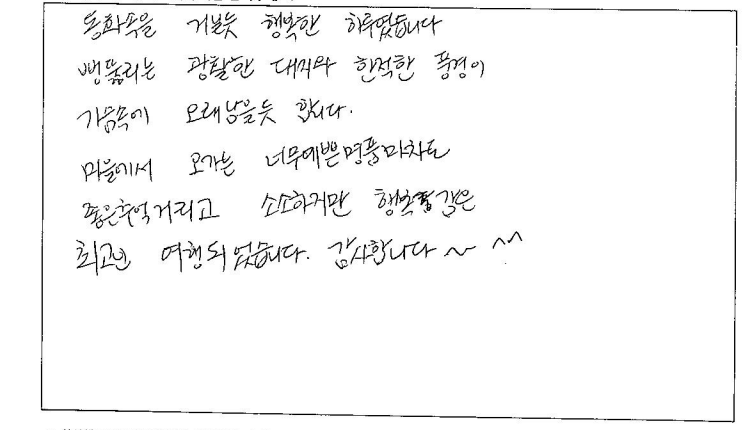 동화속을 거닐듯 행복한 하루였습니다
뻥뚫리는 광활한 대지와 한적한 풍경이
가슴속에 오래남을듯 합니다.
마을에서 오가는 너무예쁜명품마차도
좋은추억거리고 소소하지만 행복 같은
최고の 여행되었습니다. 감사합니다~ ^^